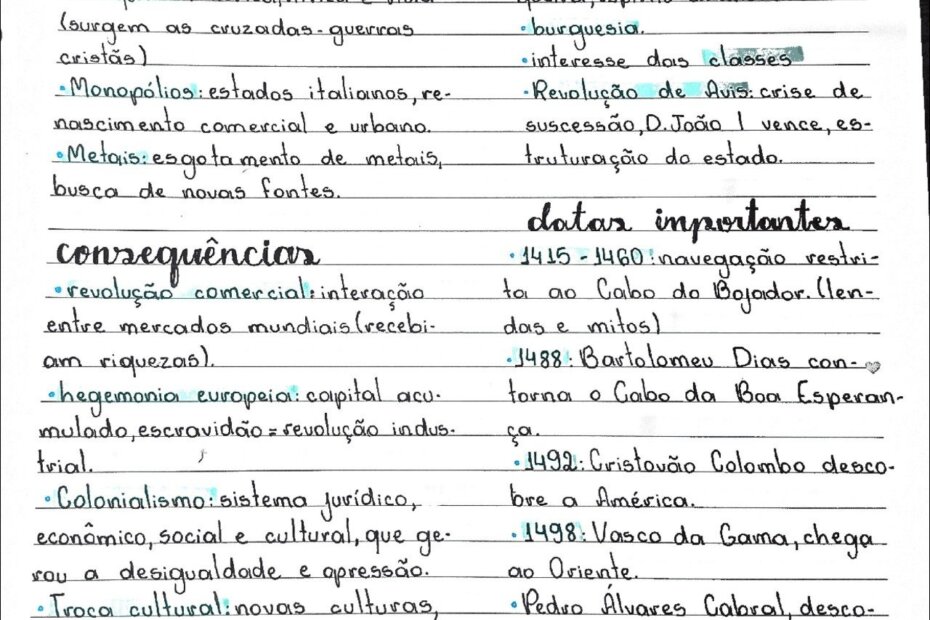 (surgem as cruzadas-guerras
cristãs)
• Monopólios: estados italianos, re-
nascimento comercial e urbano.
• Metais: esgotamento de metais,
busca de novas fontes.
consequências
• revolução comercial: interação
entre mercados mundiais (recebi-
am riquezas).
• hegemonia europeia: capital acu-
mulado, escravidão = revolução indus-
trial.
• Colonialismo: sistema jurídico,
econômico, social e cultural, que ge-
rou a desigualdade e opressão.
• Troca cultural: novas culturas,
• burguesia.
• interesse das classes
• Revolução de Avis: crise de
suscessão, D. João I vence, es-
truturação do estado.
datas importantes
• 1415 - 1460: navegação restri-
ta ao Cabo do Bojador. (len-
das e mitos)
• 1488: Bartolomeu Dias con-
torna o Cabo da Boa Esperan-
ça.
• 1492: Cristovão Colombo desco-
bre a América.
• 1498: Vasco da Gama, chega
ao Oriente.
• Pedro Álvares Cabral, desco-